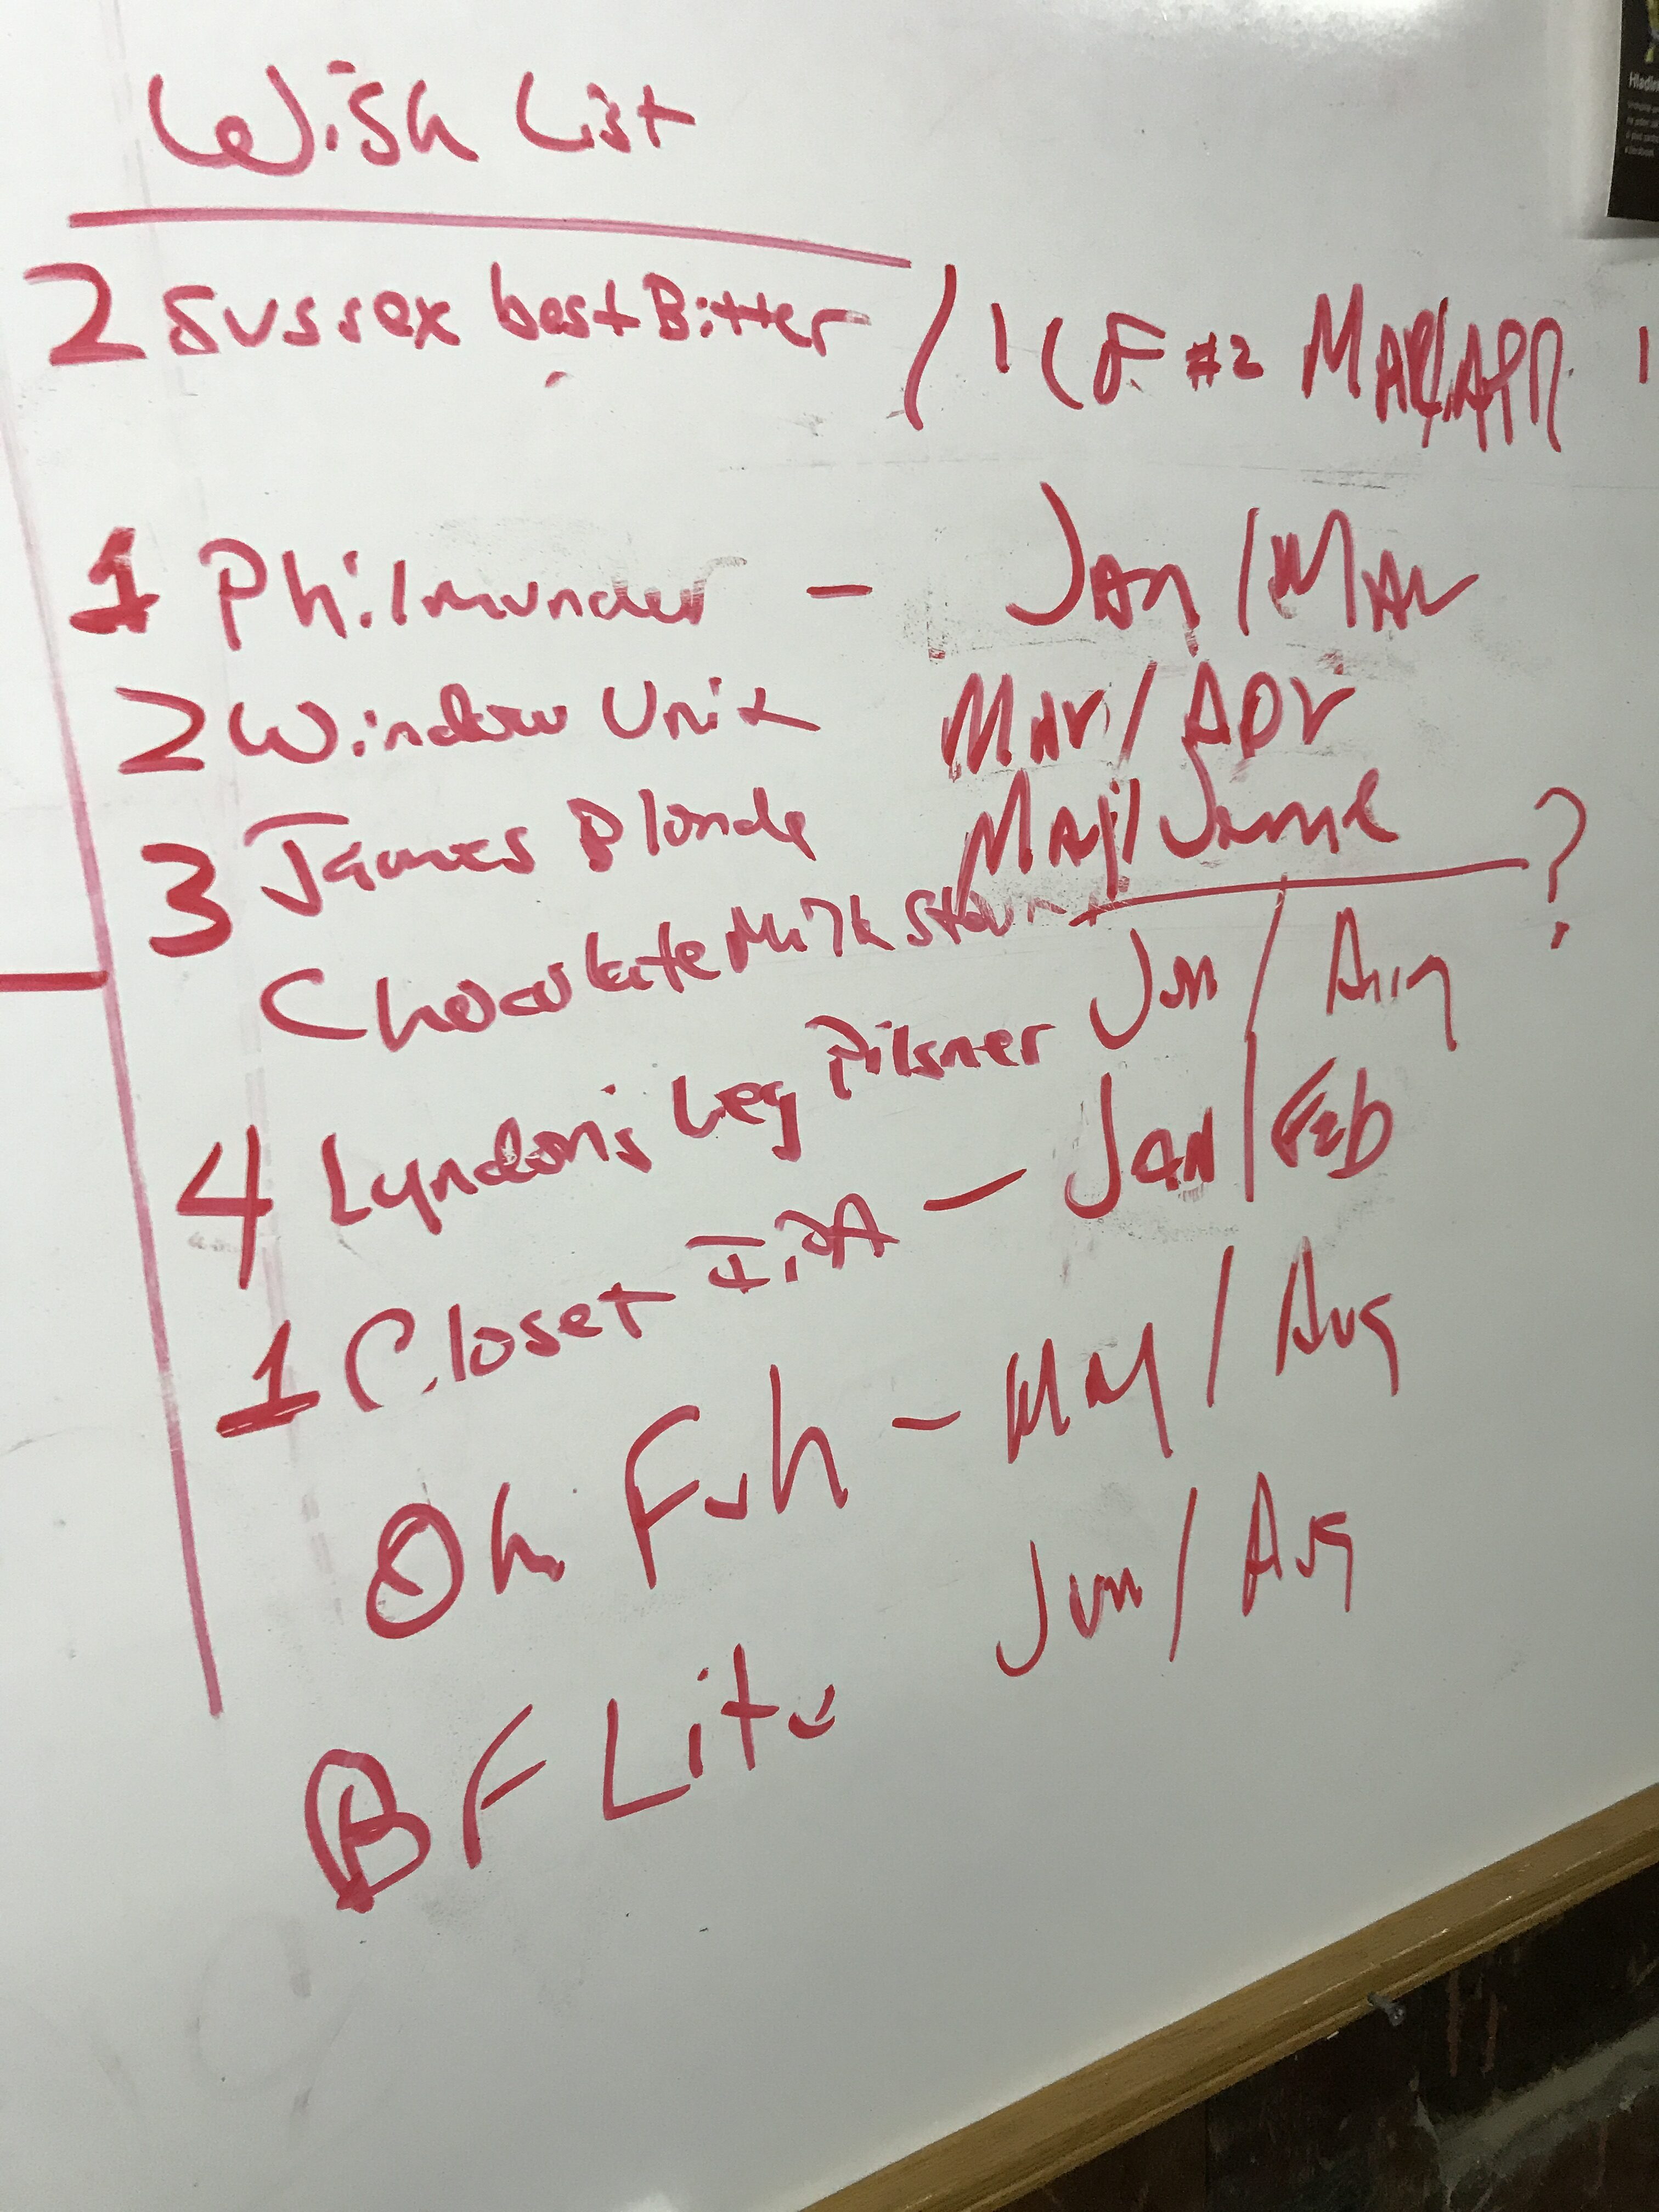 Wish List
2 Sussex best Bitter / ICF #2 MAR/APR
1 Philmunder - JAN / MAR
2 Window Unit MAR / APR
3 James Blonde MAY/June
Chocolate Milk Stout ?
4 Lyndon's Leg Pilsner Jun / Aug
1 Closet I.PA - JAN / Feb
Oh Fuh - MAY / Aug
BF Lite Jun / Aug
Hladin